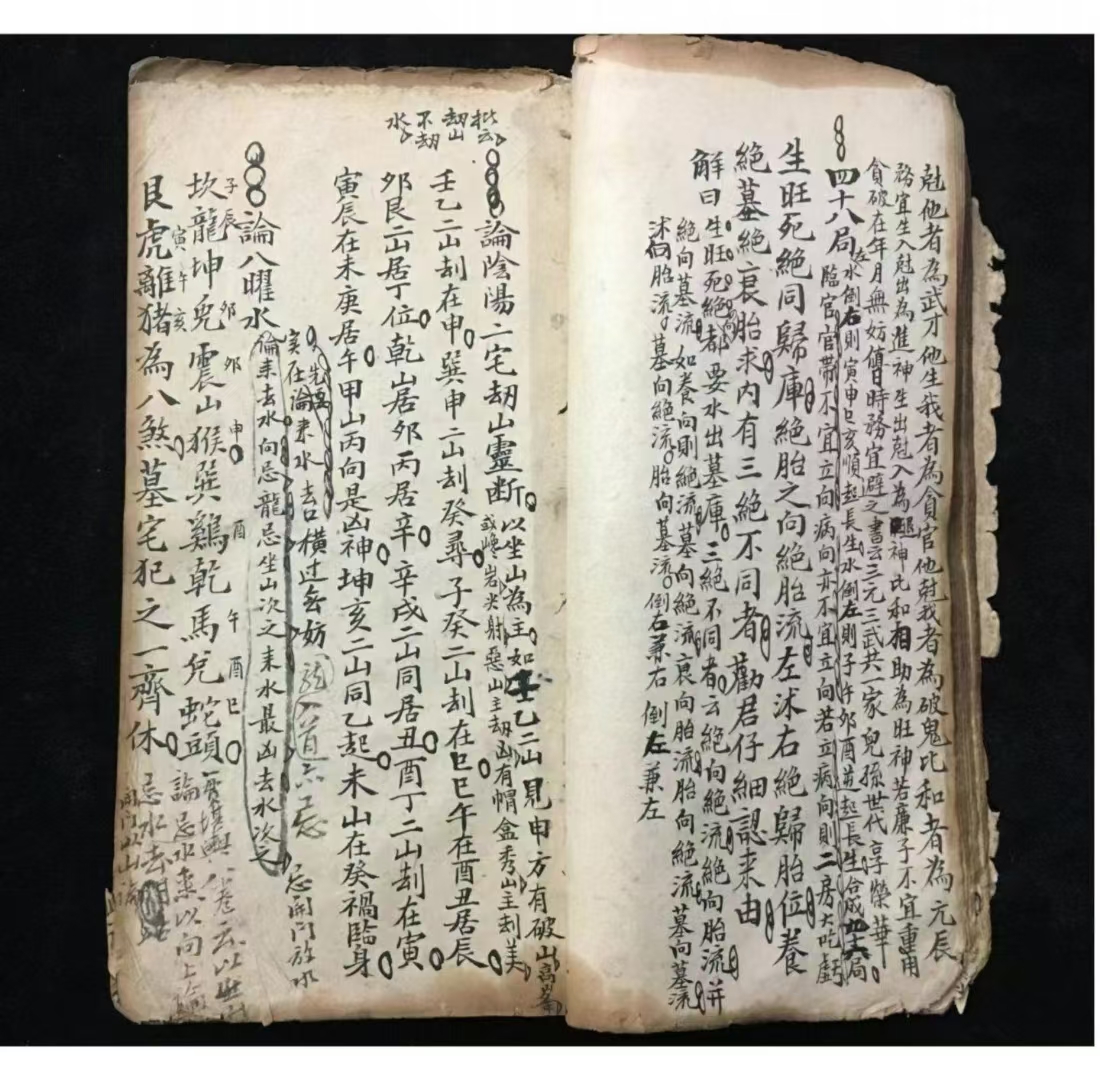 尅他者為武才他生我者為貪官他尅我者為破鬼比和者為元辰
務宜生入尅出為進神生出尅入為退神比和相助為旺神若廉子不宜重用
貪破在年月無妨值日時務宜避之書云三元三武共一家兒孫世代享榮華
四十八局
左水倒右則寅申巳亥順起長生水倒左則子午卯酉並起長生合成四十八局
臨官官帶不宜立向病向亦不宜立向若立病向則二房大吃虧
生旺死絕同歸庫絕胎之向絕胎流左沐右絕歸胎位養
絕墓絕衰胎求內有三絕不同者勸君仔細認來由
解曰
生旺死絕都要水出墓庫三絕不同者云絕向絕流絕向胎流并
絕向墓流如養向則絕流墓向絕流衰向胎流胎向絕流墓向墓流
沐向胎流墓向絕流胎向墓流倒右兼右倒左兼左
批云
劫山
不劫
水
論陰陽二宅劫山靈断
以坐山為主如壬乙二山見申方有破山高峯
或巉岩尖射惡山主劫凶有帽盒秀山主刦美
壬乙二山刦在申巽申二山刦癸尋子癸二山刦在巳巳午在酉丑居辰
夘艮二山居丁位乾山居夘丙居辛辛戍二山同居丑酉丁二山刦在寅
寅辰在未庚居午甲山丙向是凶神坤亥二山同乙起未山在癸禍臨身
先忌
实在論来水去口横过無妨
龍入首六忌
忌開門放水
論八曜水
倫来去水向忌龍忌坐山次之来水最凶去水次之
子辰 夘夘 申 酉 午酉巳
坎龍坤兎震山猴巽鷄乾馬兌蛇頭
寅午亥
艮虎離猪為八煞墓宅犯之一齊休
論忌水集以向上論
忌水去
開门以山論